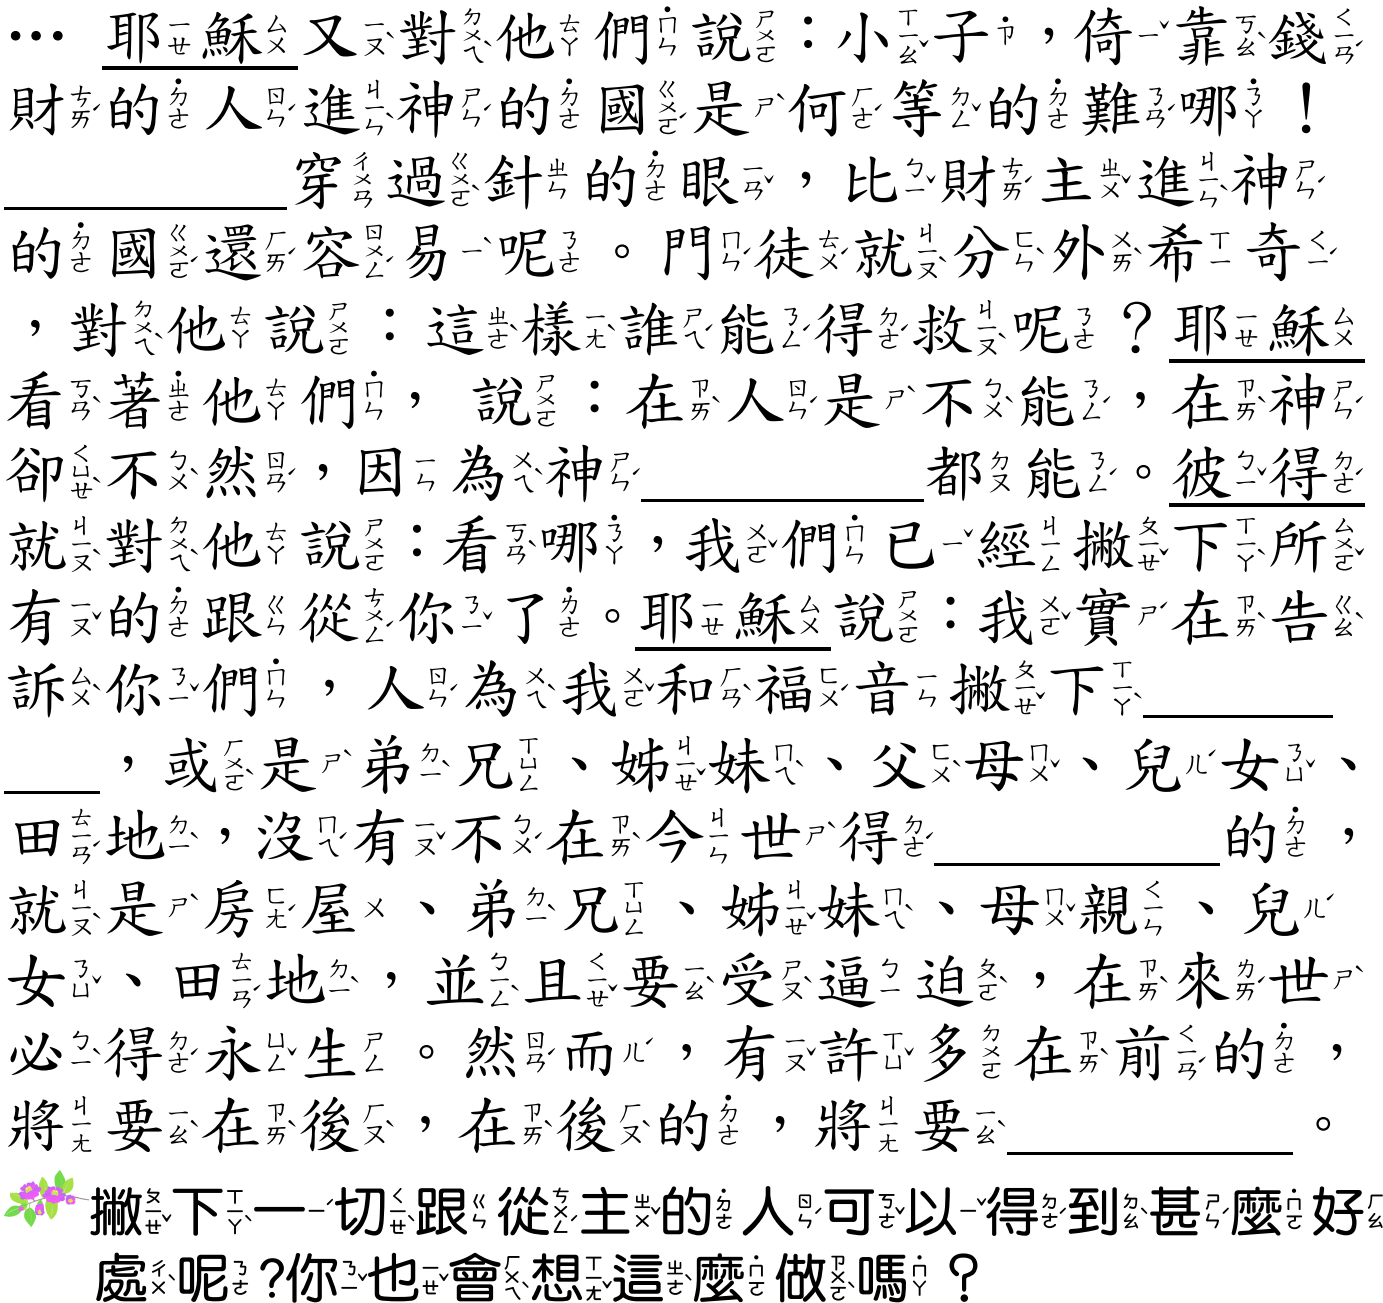 … 耶穌又對他們說：小子，倚靠錢
財的人進神的國是何等的難哪！
＿＿＿＿＿＿穿過針的眼，比財主進神
的國還容易呢。門徒就分外希奇
，對他說：這樣誰能得救呢？耶穌
看著他們，說：在人是不能，在神
卻不然，因為神＿＿＿＿＿＿都能。彼得
就對他說：看哪，我們已經撇下所
有的跟從你了。耶穌說：我實在告
訴你們，人為我和福音撇下＿＿＿＿
＿＿，或是弟兄、姊妹、父母、兒女、
田地，沒有不在今世得＿＿＿＿＿＿的，
就是房屋、弟兄、姊妹、母親、兒
女、田地，並且要受逼迫，在來世
必得永生。然而，有許多在前的，
將要在後，在後的，將要＿＿＿＿＿＿。
撇下一切跟從主的人可以得到甚麼好
處呢?你也會想這麼做嗎？